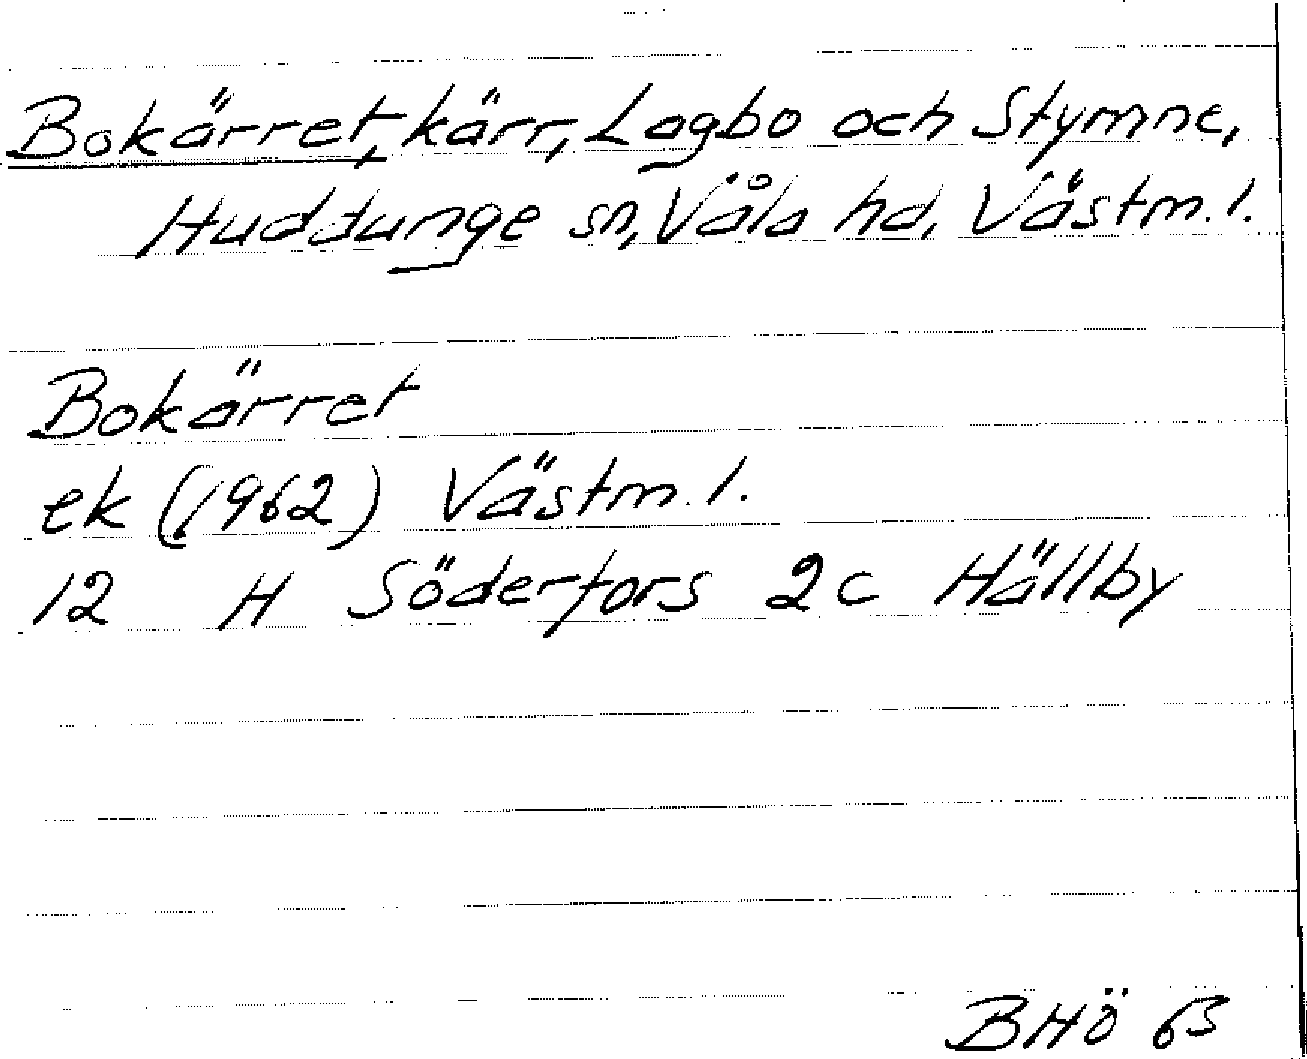 Bokärret, kärr, Logbo och Stymne,
Huddunge sn, Våla hd, Västm. l.
Bokärret
ek (1962) Västm. l.
12 H Söderfors 2c Hällby
BHÖ 63